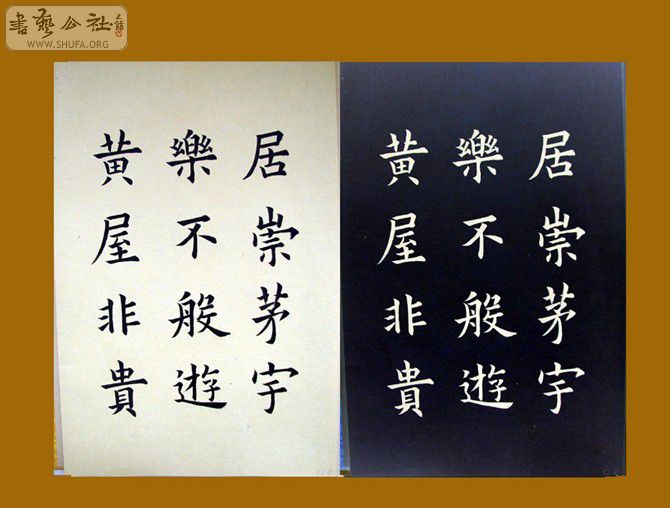 書藝公社
WWW.SHUFA.ORG
居崇茅宇
樂不般遊
黃屋非貴
居崇茅宇
樂不般遊
黃屋非貴